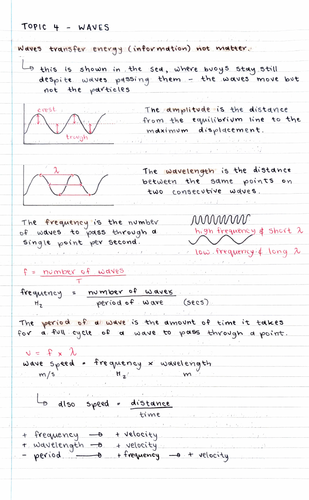 TOPIC 4 - WAVES
Waves transfer energy (information) not matter.
this is shown in the sea, where buoys stay still
despite waves passing them - the waves move but
not the particles
crest
trough
The amplitude is the distance
from the equilibrium line to the
maximum displacement.
λ
The wavelength is the distance
between the same points on
two consecutive waves.
The frequency is the number
of waves to pass through a
single point per second.
high frequency & short λ
low frequency & long λ
f = number of waves
T
frequency = number of waves
Hz period of wave (secs)
The period of a wave is the amount of time it takes
for a full cycle of a wave to pass through a point.
v = f x λ
wave speed = frequency x wavelength
m/s Hz m
also speed = distance
time
+ frequency → + velocity
+ wavelength → + velocity
- period → + frequency → + velocity